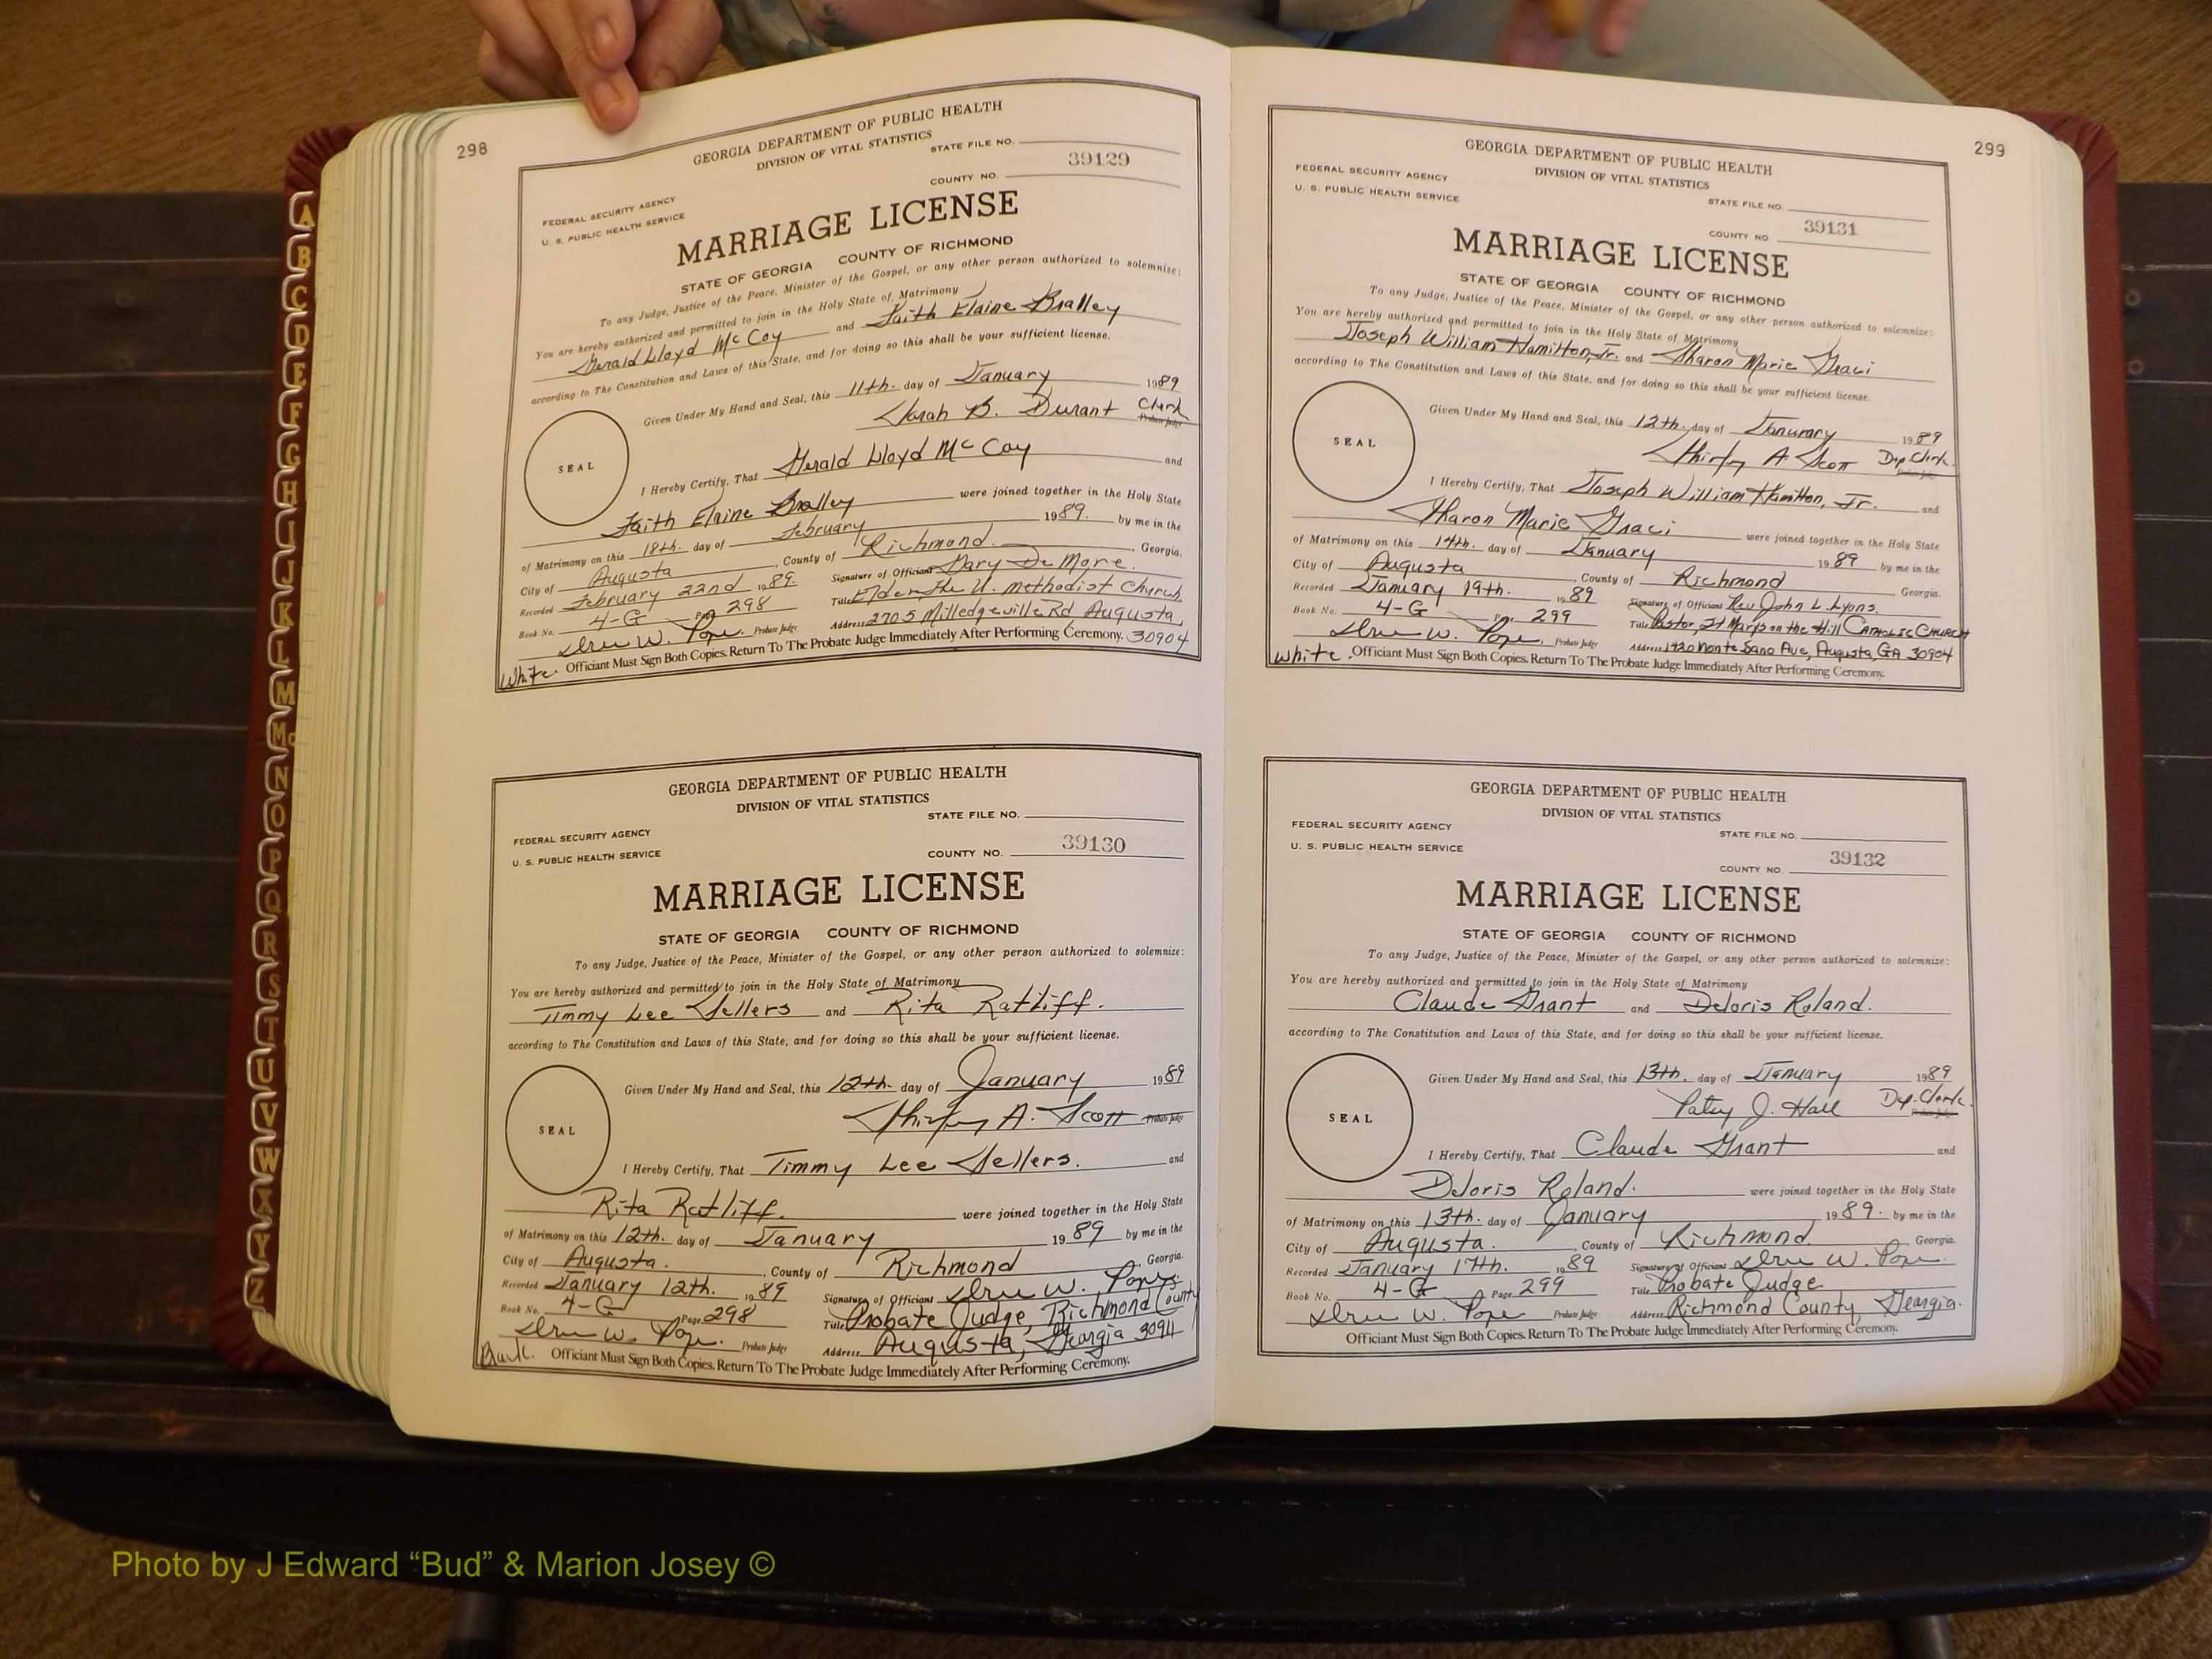 298
GEORGIA DEPARTMENT OF PUBLIC HEALTH
DIVISION OF VITAL STATISTICS
STATE FILE NO.
39129
COUNTY NO.
FEDERAL SECURITY AGENCY
U. S. PUBLIC HEALTH SERVICE
MARRIAGE LICENSE
STATE OF GEORGIA COUNTY OF RICHMOND
To any Judge, Justice of the Peace, Minister of the Gospel, or any other person authorized to solemnize:
You are hereby authorized and permitted to join in the Holy State of Matrimony
Gerald Lloyd McCoy and Faith Elaine Bralley
according to The Constitution and Laws of this State, and for doing so this shall be your sufficient license.
Given Under My Hand and Seal, this 11th. day of January 1989
Sarah B. Durant Clerk
Probate Judge
SEAL
I Hereby Certify, That Gerald Lloyd McCoy and
Faith Elaine Bralley were joined together in the Holy State
of Matrimony on this 18th. day of February 1989. by me in the
City of Augusta, County of Richmond, Georgia.
Recorded February 22nd 1989 Signature of Officiant Gary De More.
Book No. 4-G Page 298 Title Elder, the U. Methodist Church
Drew W. Pope. Probate Judge Address 2705 Milledgeville Rd, Augusta,
30904
White. Officiant Must Sign Both Copies. Return To The Probate Judge Immediately After Performing Ceremony.
GEORGIA DEPARTMENT OF PUBLIC HEALTH
DIVISION OF VITAL STATISTICS
STATE FILE NO.
FEDERAL SECURITY AGENCY
39130
U. S. PUBLIC HEALTH SERVICE
COUNTY NO.
MARRIAGE LICENSE
STATE OF GEORGIA COUNTY OF RICHMOND
To any Judge, Justice of the Peace, Minister of the Gospel, or any other person authorized to solemnize:
You are hereby authorized and permitted to join in the Holy State of Matrimony
Timmy Lee Sellers and Rita Ratliff.
according to The Constitution and Laws of this State, and for doing so this shall be your sufficient license.
Given Under My Hand and Seal, this 12th. day of January 1989
Shirley A. Scott Probate Judge
SEAL
I Hereby Certify, That Timmy Lee Sellers. and
Rita Ratliff. were joined together in the Holy State
of Matrimony on this 12th. day of January 1989 by me in the
City of Augusta. , County of Richmond, Georgia.
Recorded January 12th. 1989 Signature of Officiant Drew W. Pope.
Book No. 4-G Page 298 Title Probate Judge, Richmond County
Drew W. Pope. Probate Judge Address Augusta, Georgia 30911
Officiant Must Sign Both Copies. Return To The Probate Judge Immediately After Performing Ceremony.
299
GEORGIA DEPARTMENT OF PUBLIC HEALTH
DIVISION OF VITAL STATISTICS
FEDERAL SECURITY AGENCY
U. S. PUBLIC HEALTH SERVICE
STATE FILE NO.
39131
COUNTY NO.
MARRIAGE LICENSE
STATE OF GEORGIA COUNTY OF RICHMOND
To any Judge, Justice of the Peace, Minister of the Gospel, or any other person authorized to solemnize:
You are hereby authorized and permitted to join in the Holy State of Matrimony
Joseph William Hamilton, Jr. and Sharon Marie Graci
according to The Constitution and Laws of this State, and for doing so this shall be your sufficient license.
Given Under My Hand and Seal, this 12th. day of Janurary 1989
Shirley A Scott Dep. Clerk.
SEAL
I Hereby Certify, That Joseph William Hamilton, Jr. and
Sharon Marie Graci were joined together in the Holy State
of Matrimony on this 14th. day of January 1989 by me in the
City of Augusta, County of Richmond Georgia.
Recorded January 19th. 1989 Signature of Officiant Rev. John L. Lyons.
Book No. 4-G Page 299 Title Pastor, St Marys on the Hill CATHOLIC CHURCH
Drew W. Pope. Probate Judge Address 1420 Monte Sano Ave, Augusta, GA 30904
White. Officiant Must Sign Both Copies. Return To The Probate Judge Immediately After Performing Ceremony.
GEORGIA DEPARTMENT OF PUBLIC HEALTH
DIVISION OF VITAL STATISTICS
FEDERAL SECURITY AGENCY
STATE FILE NO.
U. S. PUBLIC HEALTH SERVICE
39132
COUNTY NO.
MARRIAGE LICENSE
STATE OF GEORGIA COUNTY OF RICHMOND
To any Judge, Justice of the Peace, Minister of the Gospel, or any other person authorized to solemnize:
You are hereby authorized and permitted to join in the Holy State of Matrimony
Claude Grant and Deloris Roland.
according to The Constitution and Laws of this State, and for doing so this shall be your sufficient license.
Given Under My Hand and Seal, this 13th. day of January 1989
Patsy J. Hall Dep. Clerk.
Probate Judge
SEAL
I Hereby Certify, That Claude Grant and
Deloris Roland. were joined together in the Holy State
of Matrimony on this 13th. day of January 1989. by me in the
City of Augusta. , County of Richmond. Georgia.
Recorded January 17th. 1989 Signature of Officiant Drew W. Pope
Book No. 4-G Page 299 Title Probate Judge
Drew W. Pope. Probate Judge Address Richmond County, Georgia.
Officiant Must Sign Both Copies. Return To The Probate Judge Immediately After Performing Ceremony.
A
B
C
D
E
F
G
H
I
J
K
L
M
Mc
N
O
P
Q
R
S
T
U
V
W
X
Y
Z
Photo by J Edward “Bud” & Marion Josey ©